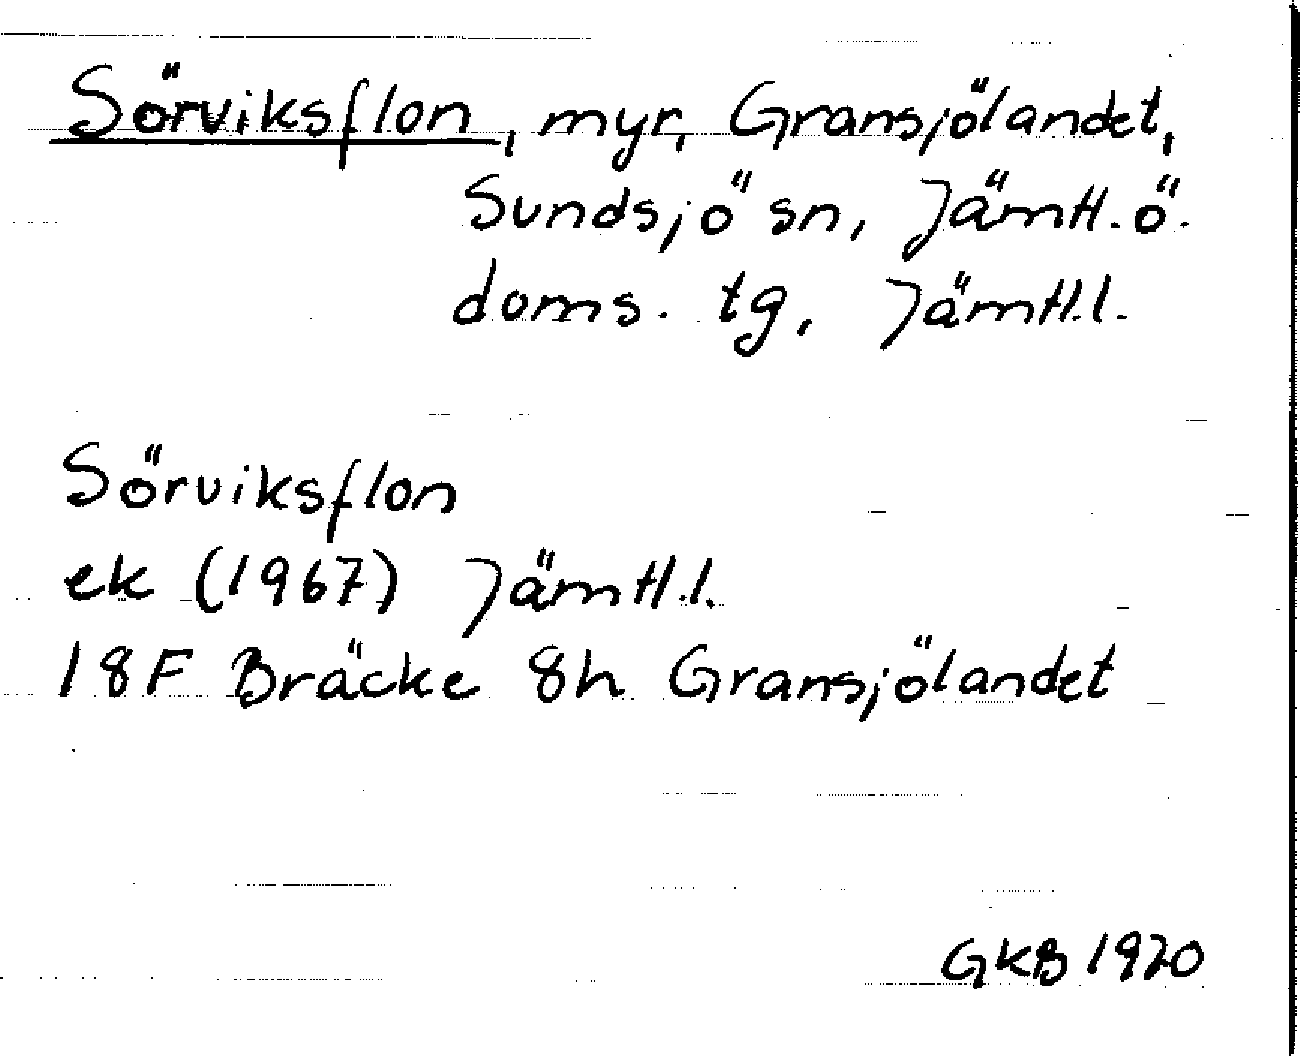 Sörviksflon, myr, Gransjölandet,
Sundsjö sn, Jämtl. ö.
doms. tg, Jämtl.l.
Sörviksflon
ek (1967) Jämtl.l.
18F Bräcke 8h Gransjölandet
GKB 1970